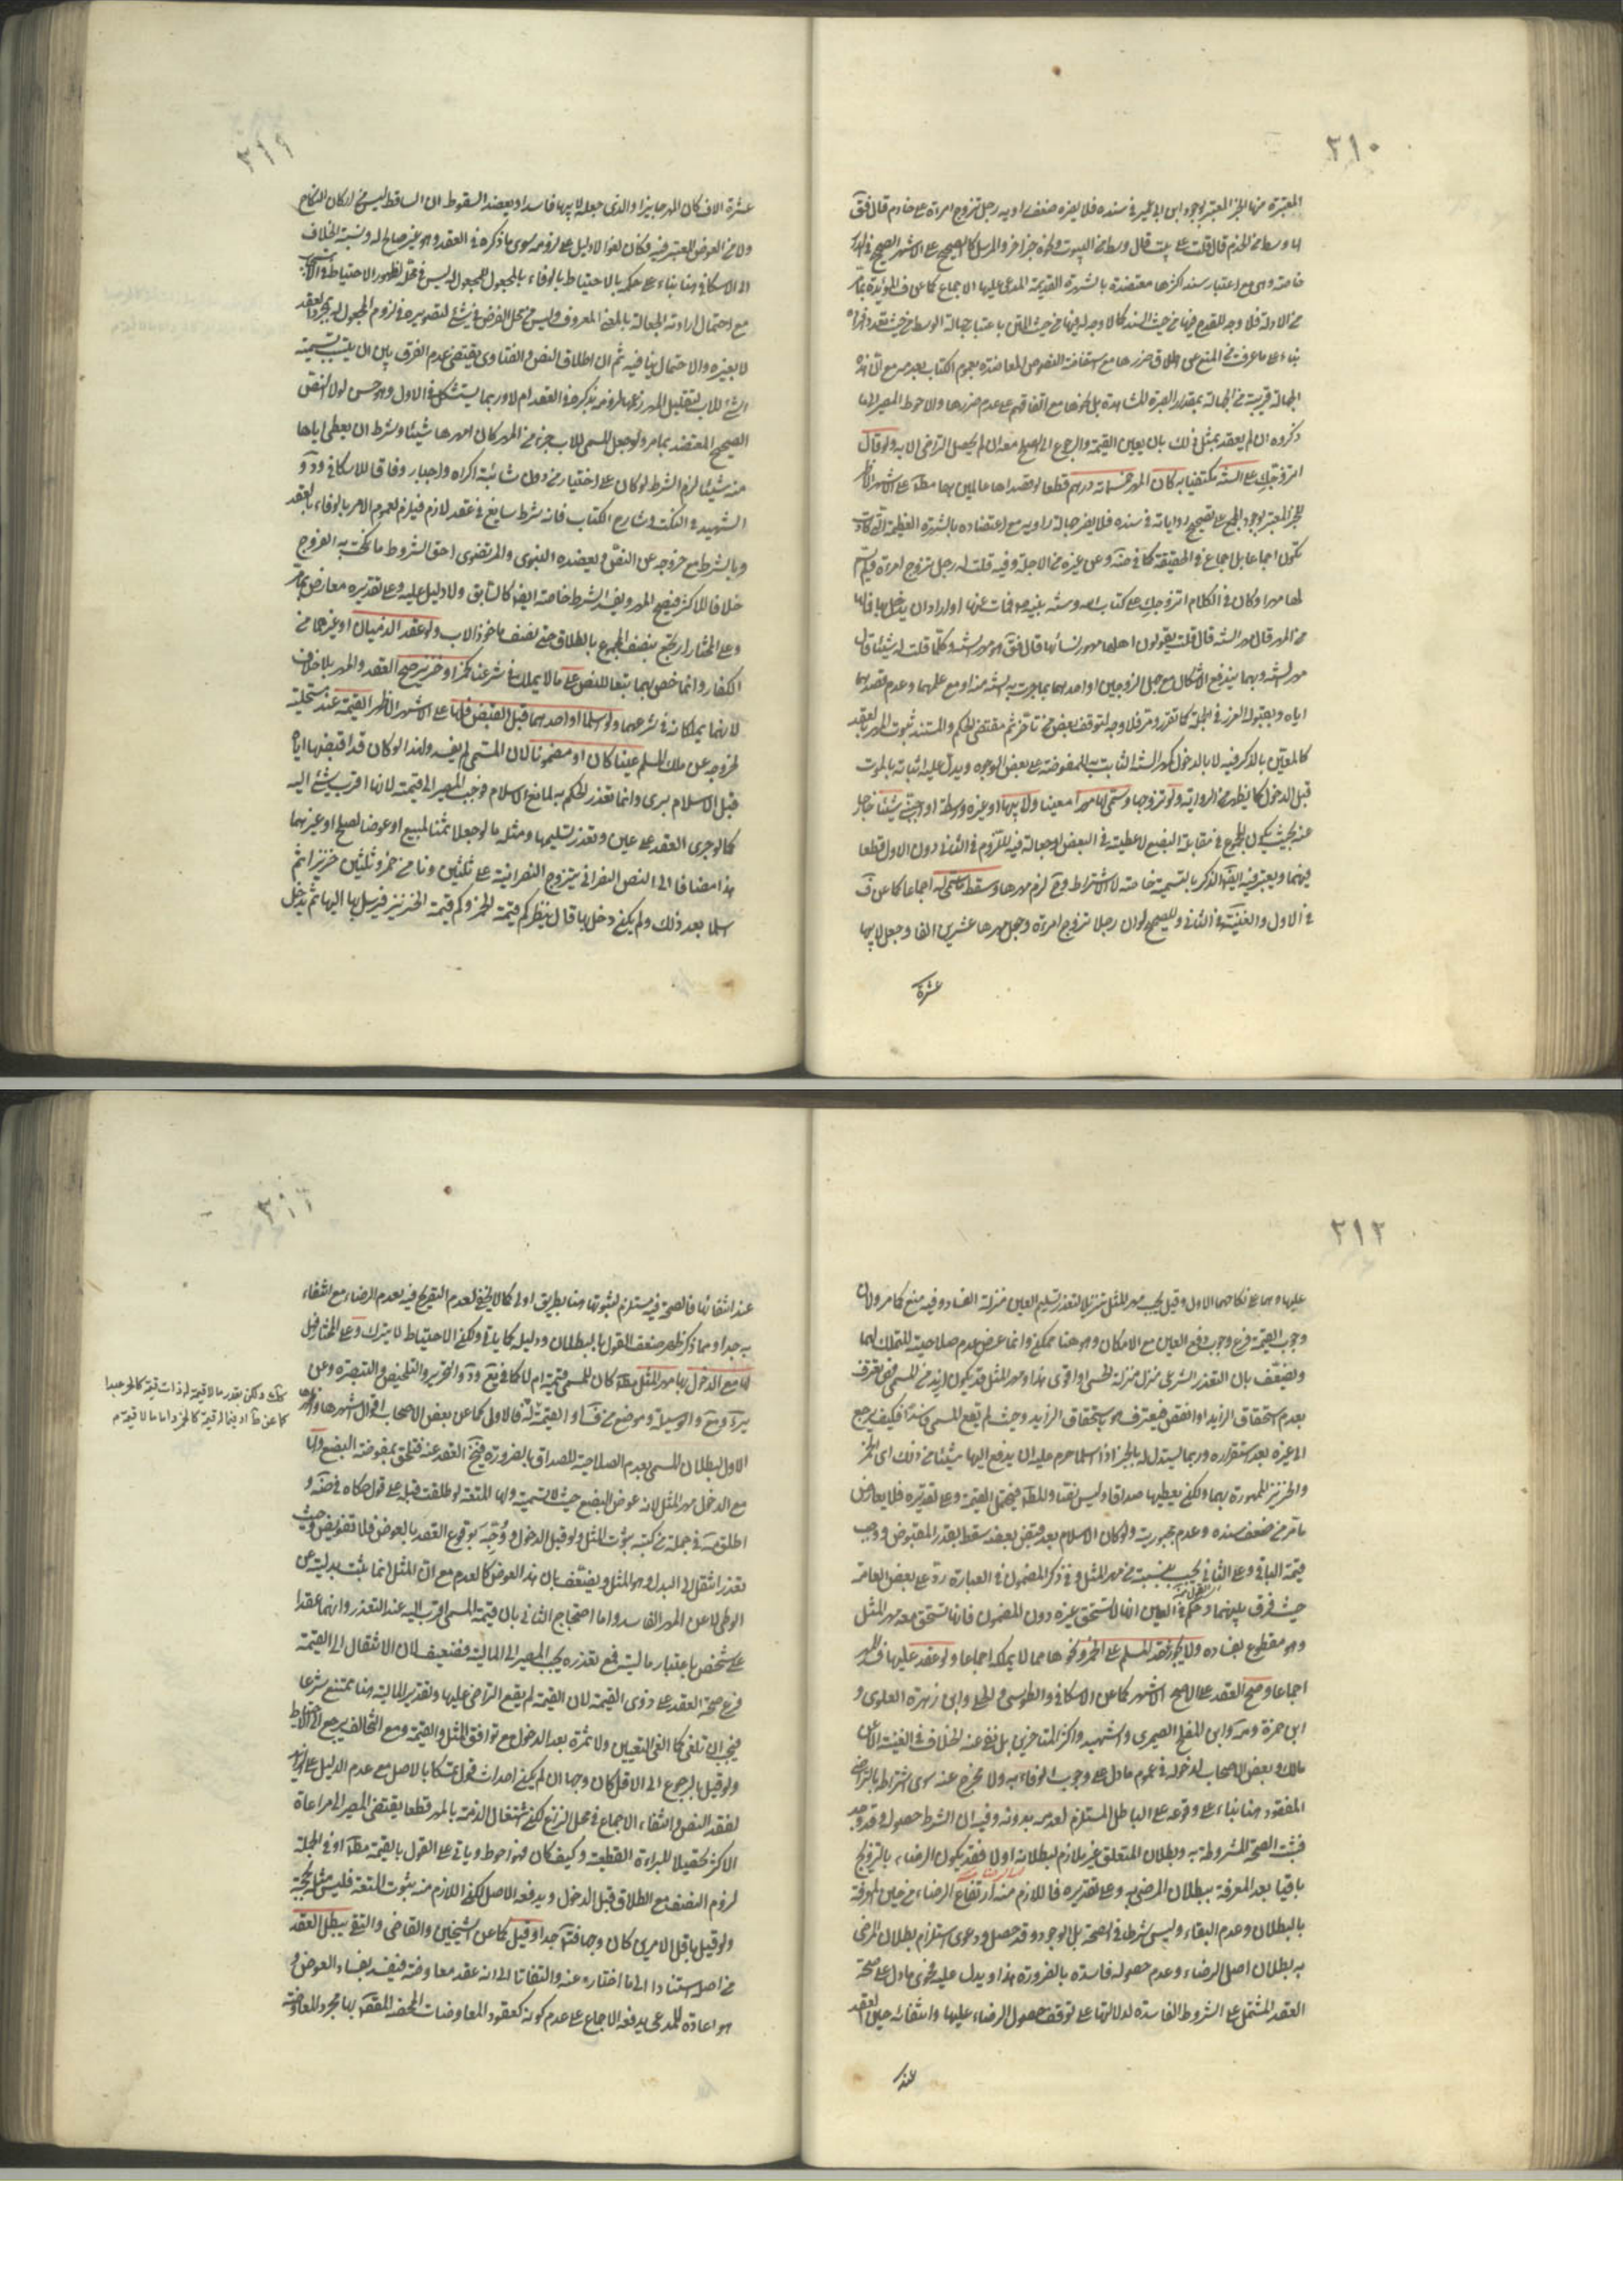 ٣١٠
المعتبرة منها الخبر المعتبر بوجود ابن ابي عمير في سنده فلا يضره ضعف راويه رجل تزوج امرأة على خادم قال فقال
لها وسط من الخدم قال قلت على بيت قال وسط من البيوت ونحوه خبر اخر والمرسل كالصحيح على الاشهر الصحيح في الدار
خاصة وهي مع اعتبار سند اكثرها معتضدة بالشهرة القديمة المدعى عليها الاجماع كما عن ف المؤيدة بما مر
من الادلة فلا وجه للقدح فيها من حيث السند كما لا وجه له فيها من حيث المتن باعتبار جهالة الوسط من حيث تعدد افراده
بناء على ما عرفت من المنع عن اطلاق ضررها مع استفاضة النصوص المعاضدة بعموم الكتاب بعدمه مع ان هذه
الجهالة قريبة من الجهالة بمقدار الصبرة المشاهدة بل نحوها مع اتفاقهم على عدم ضررها والاحوط المصير الى ما
ذكروه ان لم يعقد بمثل ذلك بان يعين القيمة والرجوع الى الصلح معه ان لم يحصل التراضي الا به ولو قال
اتزوجك على السنة مكتفيا به كان المهر خمسمائة درهم قطعا لو قصداها عالمين بها مطلقا على الاشهر الاظهر
للخبر المعتبر بوجود المجمع على تصحيح رواياته في سنده فلا يضر جهالة راويه مع اعتضاده بالشهرة العظيمة التي كادت
تكون اجماعا بل اجماع في الحقيقة كما في ضه وعن غيره من الاجلة وفيه قلت له رجل تزوج امرأة فلم يسم
لها مهرا وكان في الكلام اتزوجك على كتاب الله وسنة نبيه ص فمات عنها او اراد ان يدخل بها فما لها
من المهر قال مهر السنة قال قلت يقولون اهلها مهور نسائها قال فقال هو مهر السنة وكلما قلت له شيئا قال
مهر السنة وبهما يندفع الاشكال مع جهل الزوجين او احدهما بما جرت به السنة منه او مع علمهما وعدم قصدهما
اياه وبقبوله الغرر في الجملة كما تقرر ومر فلا وجه لتوقف بعض من تاخر ثم مقتضى الحكم والمستند ثبوت المهر بالعقد
كالمعين بالذكر فيه لا بالدخول كمهر السنة الثابت به للمفوضة على بعض الوجوه ويدل عليه اثباته بالموت
قبل الدخول كما يظهر من الرواية ولو تزوجها وسمى لها مهرا معينا ولابيها او غيره وسطة او اجنبي شيئا خارجا
عنه بحيث يكون المجموع في مقابلة البضع لا عطية في البعض او جعالة فيه للتزوم في الثاني دون الاول قطعا
فيهما ويعتبر فيه ايضا الذكر بالتسمية خاصة لا الاشتراط وح لزم مهرها وسقط ما سمى له اجماعا كما عن ف
في الاول والغنية في الثاني وللصحيح لو ان رجلا تزوج امرأة وجعل مهرها عشرين الفا وجعل لابيها
عشرة
٣١١
عشرة الاف كان المهر جايزا والذي جعله لابيها فاسدا ويعضد السقوط ان الساقط ليس من اركان النكاح
ولا من العوض المعتبر فيه فكان لغوا لا دليل على لزومه سوى ما ذكره في العقد وهو غير صالح له ونسبة الخلاف
الى الاسكافي هنا بناء على حكمه بالاحتياط بالوفاء بالمجعول للمجعول له ليس في محله لظهور الاحتياط في الاستحباب
مع احتمال ارادته الجعالة بالمعنى المعروف وليس من محل الفرض في شئ لتصويره في لزوم المجعول له بمجرد العقد
لا بغيره والاحتمال ينافيه ثم ان اطلاق النص والفتاوى يقتضي عدم الفرق بين ان يتسبب تسمية
الشئ للاب لتقليل المهر زعما لزومه بذكره في العقد ام لا وربما يستشكل في الاول وهو حسن لولا النص
الصحيح المعتضد بما مر ولو جعل المسمى للاب جزء من المهر كان امهرها شيئا وشرط ان يعطى اباها
منه شيئا لزم الشرط لو كان على اختيار منه دون شائبة اكراه واجبار وفاقا للاسكافي
الشهيد في النكت وشارح الكتاب فانه شرط سايغ في عقد لازم فيلزم لعموم الامر بالوفاء بالعقد
وبالشرط مع خروجه عن النص ويعضده النبوي والمرتضوي احق الشروط ما نكحت به الفروج
خلافا للاكثر فيصح المهر ويفسد الشرط خاصة ايضا كالسابق ولا دليل عليه وعلى تقديره معارض بما مر
وعلى المختار ارتجع بنصف المجموع بالطلاق حتى نصف ماخوذ الاب ولو عقد الذميان او غيرهما من
الكفار وانما خص بهما تبعا للنص على ما لا يملك في شرعنا كخمر او خنزير صح العقد والمهر بلا خلاف
لانهما يملكانه في شرعهما ولو اسلما او احدهما قبل القبض فلها على الاشهر الاظهر القيمة عند مستحليه
لخروجه عن ملك المسلم عينا كان او مضمونا لان المسمى لم يفسد ولهذا لو كان قد اقبضها اياه
قبل الاسلام برئ وانما تعذر الحكم به لمانع الاسلام فوجب المصير الى قيمته لانها اقرب شئ اليه
كما لو جرى العقد على عين وتعذر تسليمها ومثله ما لو جعلا ثمنا لمبيع او عوضا لصلح او غيرهما
هذا مضافا الى النص النصراني يتزوج النصرانية على ثلثين دنا من خمر وثلثين خنزيرا ثم
اسلما بعد ذلك ولم يكن دخل بها قال ينظر كم قيمة الخمر وكم قيمة الخنزير فيرسل بها اليها ثم يدخل
٣١٢
عليها وهما على نكاحهما الاول وقيل يجب مهر المثل تنزيلا لتعذر تسليم العين منزلة الفساد وفيه منع كما مر ولان
وجوب القيمة فرع وجوب دفع العين مع الامكان وهو هنا ممكن وانما عرض عدم صلاحيته للتملك لهما
ويضعف بان التعذر الشرعي منزل منزلة الحسي او اقوى هذا ومهر المثل قد يكون ازيد من المسمى فهي تعترف
بعدم استحقاق الزايد او انقص فيعترف هو باستحقاق الزايد وحيث لم يقع المسمى فاسدا فكيف يرجع
الى غيره بعد استقراره وربما يستدل له بالخبر اذا اسلما حرم عليه ان يدفع اليها شيئا من ذلك اى الخمر
والخنزير الممهورة بهما ولكن يعطيها صداقا وليس نصا والمطلق فيحتمل القيمة وعلى تقديره فلا يعارض
ما مر من ضعف سنده وعدم جبره ولو كان الاسلام بعد قبض بعضه سقط بقدر المقبوض ووجب
قيمة الباقي وعلى الثاني يجب بنسبته من مهر المثل وفي ذكر المضمون في العبارة رد على بعض العامة
حيث فرق بينهما وحكم في العين انها لا تستحق غيره دون المضمون فانها تستحق معه مهر المثل
وهو مقطوع بفساده ولا يجوز عقد المسلم على الخمر ونحوها مما لا يملكه اجماعا ولو عقد عليها فسد المهر
اجماعا وصح العقد على الاصح الاشهر كما عن الاسكافي والطوسي والحلي وابن زهرة العلوي و
ابن حمزة ومه وابن المفلح الصيمري والشهيد واكثر المتاخرين بل نفى عنه الخلاف في الغنية الا عن
مالك وبعض الاصحاب لدخوله في عموم ما دل على وجوب الوفاء به ولا مخرج عنه سوى اشتراط بالتراضي
المفقود هنا بناء على وقوعه على الباطل المستلزم لعدمه بدونه وفيه ان الشرط حصوله وقد وجد
فثبت الصحة المشروطة به وبطلان المتعلق غير ملازم لبطلانه اولا فقد يكون الرضاء بالتزويج
باقيا بعد المعرفة ببطلان المرضي به وعلى تقديره فاللازم منه ارتفاع الرضاء من حين المعرفة
بالبطلان وعدم البقاء وليس شرطا في الصحة بل الوجود وقد حصل ودعوى استلزام بطلان المرضي
به بطلان اصل الرضاء وعدم حصوله فاسدة بالضرورة هذا ويدل عليه فحوى ما دل على صحة
العقد المشتمل على الشروط الفاسدة لدلالتها على توقف حصول الرضاء عليها وانتفائه حين العقد
عند
٣١٣
عند انتفائها فالصحة فيه مستلزم لثبوتها هنا بطريق اولى كما لا يخفى لعدم التصريح فيه بعدم الرضاء مع انتفاء
به جدا ومما ذكر ظهر ضعف القول بالبطلان ودليله كما ياتى ولكن الاحتياط لا يترك وعلى المختار قيل
لها مع الدخول بها مهر المثل مطلقا كان للمسمى قيمة ام لا كما في يع ود والتحرير والتلخيص والتبصرة وعن
والوسيلة وموضع من ف او القيمة لثالثة فالاولى كما عن بعض الاصحاب اقوال اشهرها واظهرها
الاول لبطلان المسمى بعدم الصلاحية للصداق بالضرورة فيصح العقد عنه فتلحق بمفوضة البضع ولها
مع الدخول مهر المثل لانه عوض البضع حيث لا تسمية ولها المتعة لو طلقت قبله على قول حكاه في ضه و
اطلق مه في جملة من كتبه بثبوت المثل ولو قبل الدخول ووجه بوقوع العقد بالعوض فلا تفويض وحيث
تعذر انتقل الى البدل وهو المثل ويضعف بان هذا العوض كالعدم مع ان المثل انما يثبت بدليته عن
الوطى لا عن المهر الفاسد واما احتجاج الثاني بان قيمة المسمى اقرب اليه عند التعذر وانهما عقدا
على شخص باعتبار ماليته فمع تعذره يجب المصير الى المالية فضعيف لان الانتقال الى القيمة
فرع صحة العقد على ذوى القيمة لان القيمة لم يقع التراضي عليها وتقدير المالية هنا ممتنع شرعا
فيجب ان تلغى كما الغى التعيين ولا ثمرة بعد الدخول مع توافق المثل والقيمة ومع التخالف يرجع الى الاحتياط
ولو قيل بالرجوع الى الاقل كان وجها ان لم يكن احداث قول تمسكا بالاصل مع عدم الدليل على الزايد
لفقد النص وانتفاء الاجماع في محل النزاع لكن اشتغال الذمة بالمهر قطعا يقتضي المصير الى مراعاة
الاكثر تحصيلا للبراءة القطعية وكيف كان فهو احوط وياتي على القول بالقيمة مطلقا او في الجملة
لزوم النصف مع الطلاق قبل الدخول ويدفعه الاصل لكن اللازم منه ثبوت المتعة فليس مثله بحجة
ولو قيل باقل الامرين كان وجها فتامل جدا وقيل كما عن الشيخين والقاضي والتقي يبطل العقد
من اصله استنادا الى ما اختاره عنه والتفاتا الى انه عقد معاوضة فيفسد بفساد العوض و
هو اعادة للمدعى يدفعه الاجماع على عدم كونه كعقود المعاوضات المحضة المقصود بها مجرد المعاوضة
ولكن بقدر ما لا قيمة له ذات قيمة كالحر عبدا